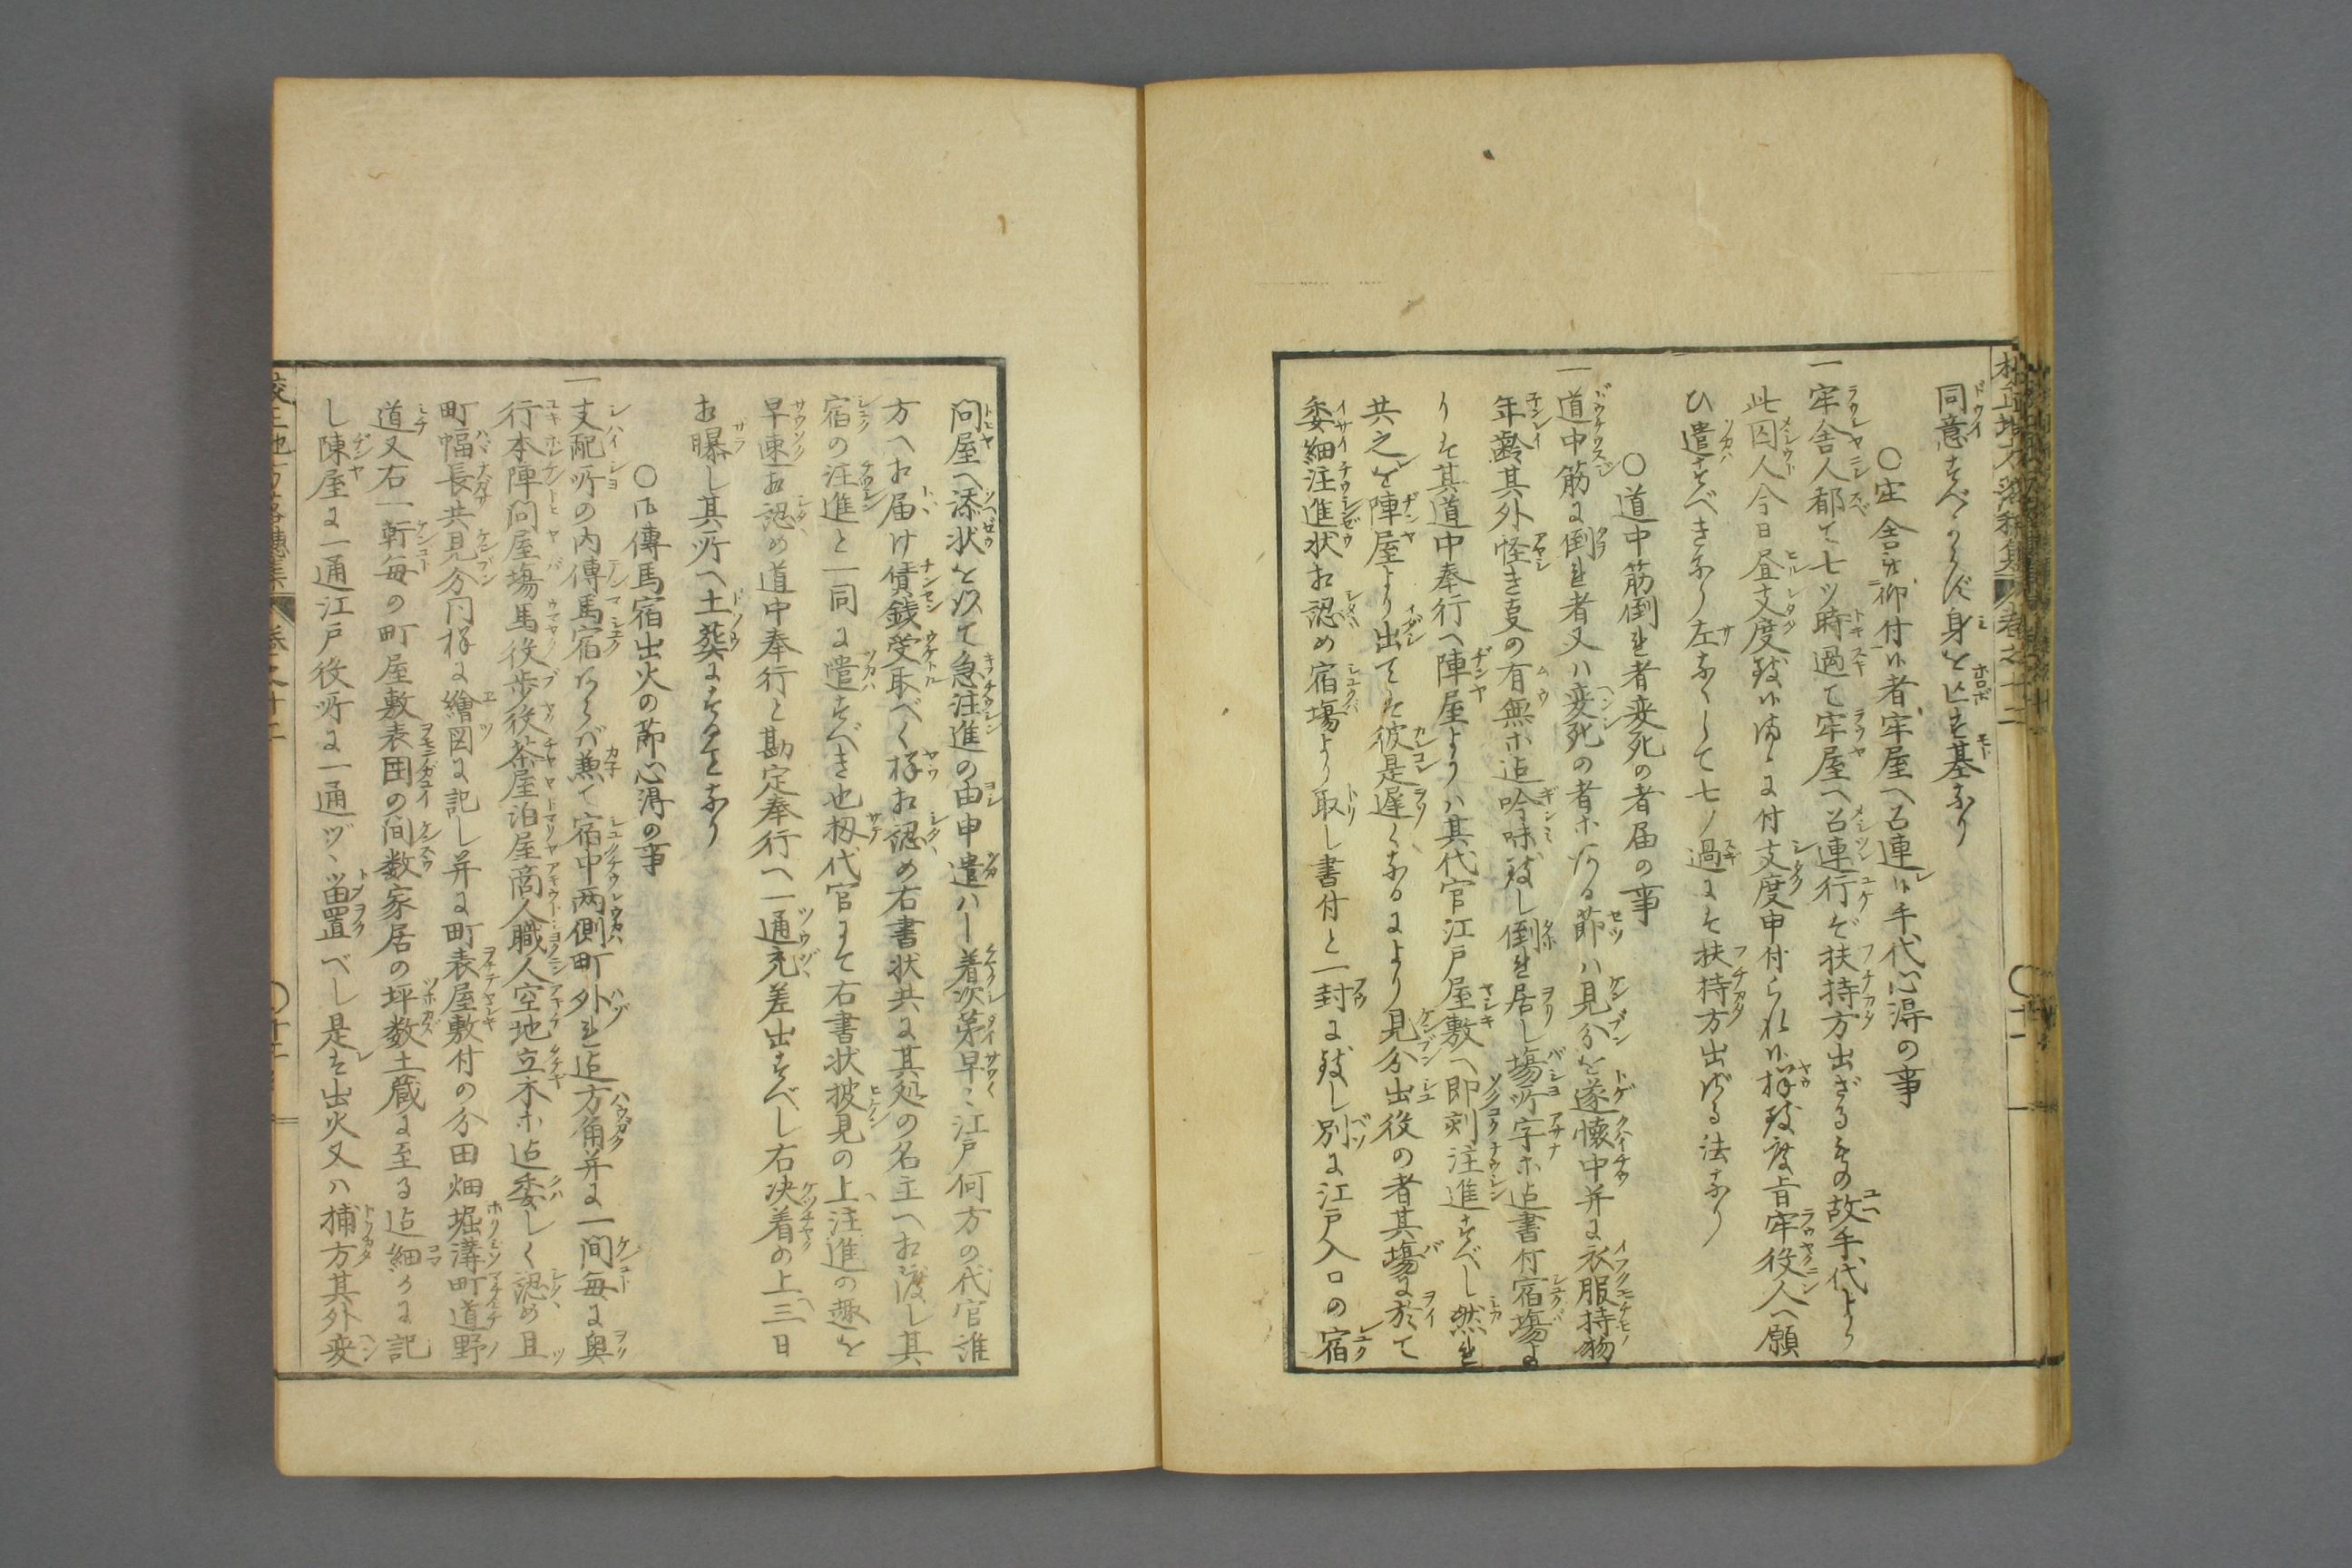 同意すべからず身を亡す基なり
〇牢舎被仰付候者牢屋へ召連候手代心得の事
一牢舎人都て七ツ時過て牢屋へ召連行ば扶持方出ざるもの故手代より
此囚人今日昼支度致候侭に付支度申付られ候様致度旨牢役人へ願
ひ遣すべきなり左なくして七ツ過にては扶持方出ざる法なり
〇道中筋倒れ者変死の者届の事
一道中筋に倒れ者又ハ変死の者ホある節ハ見分を遂懐中并に衣服持物
年齢其外怪き𠮟の有無ホ迄吟味致し倒れ居し場所字ホ迄書付宿場よ
りは其道中奉行へ陣屋よりハ其代官江戸屋敷へ即剋注進すべし然れ
共之を陣屋より出ては彼是遅くなるにより見分出役の者其場に於て
委細注進状お認め宿場より取し書付と一封に致し別に江戸入口の宿
問屋へ添状を以て急注進の由申遣ハし着次第早〻江戸何方の代官誰
方へお届け賃銭受取べく様お認め右書状共に其処の名主へお渡し其
宿の注進と一同に遣すべき也扨代官にて右書状披見の上注進の趣を
早速お認め道中奉行と勘定奉行へ一通充差出すべし右決着の上三日
お曝し其所へ土葬にすること なり
〇御傳馬宿出火の節心得の事
一支配所の内傳馬宿あらバ兼て宿中両側町外れ迄方角并に一間毎に奥
行本陣問屋場馬役歩役茶屋泊屋商人職人空地立木ホ迄委しく認め且
町幅長共見分同様に繪図に記し并に町表屋敷付の分田畑堀溝町道野
道又右一軒毎の町屋敷表囲の間数家居の坪数土蔵に至る迄細かに記
し陳屋に一通江戸役所に一通ヅヽ留置べし是は出火又ハ捕方其外変